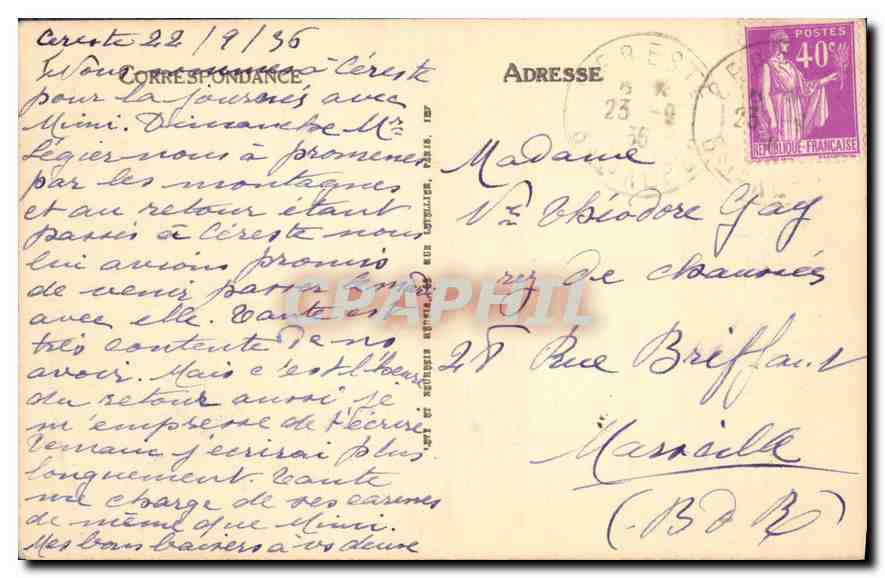 Céreste 22/9/36
CORRESPONDANCE
Nous sommes à Céreste
pour la journés avec
Mimi. Dimanche Mr
Légier nous à promenes
par les montagnes
et au retour étant
passés à Céreste nous
lui avions promis
de venir passer
avec elle. Tante est
très contente de nos
avoir. Mais c'est l'heure
du retour aussi je
m'empresse de t'écrire
Demain j'écrirai plus
longuement. Tante
me charge de ses caresses
de même que Mimi.
Mes bons baisers à vs deux
LEVY ET NEURDEIN RÉUNIS, RUE LETELLIER, PARIS
ADRESSE
CERESTE
23 -9
36
POSTES
40c
REPUBLIQUE-FRANÇAISE
Madame
Vve Théodore Gay
rez de chaussées
28 Rue Briffaut
Marseille
(B d R)
CPAPHIL